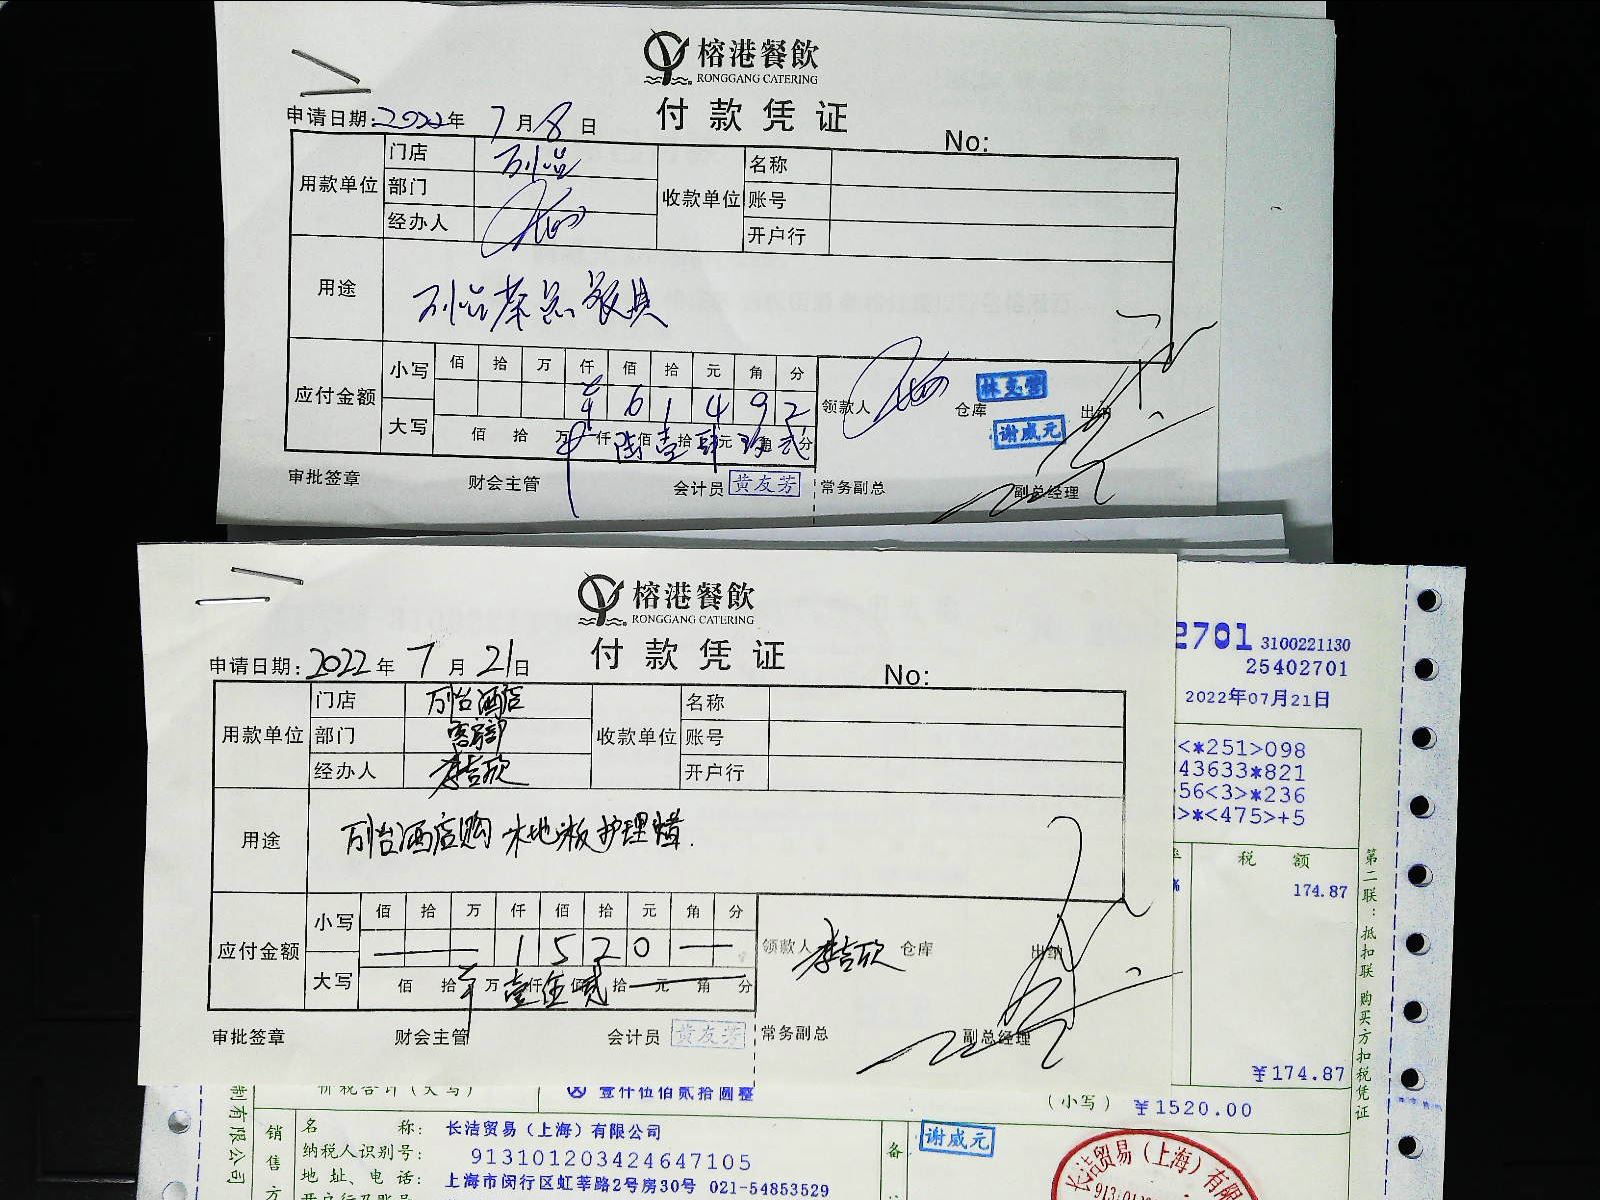 榕港餐飲
RONGGANG CATERING
付款凭证
申请日期:2022年7月8日
No:
用款单位 门店 万怡 收款单位 名称
部门 账号
经办人 开户行
用途
应付金额 小写 佰 拾 万 仟 佰 拾 元 角 分
¥ 6 1 4 9 2
大写 佰 拾 万 仟 陆佰 壹拾 肆元 玖角 贰分
领款人 仓库 林克雷 出纳
谢威元
审批签章 财会主管 会计员 黄友芳 常务副总 副总经理
榕港餐飲
RONGGANG CATERING
付款凭证
申请日期:2022年7月21日
No:
用款单位 门店 万怡酒店 收款单位 名称
部门 客房部 账号
经办人 李吉欣 开户行
用途 万怡酒店购木地板护理蜡.
应付金额 小写 佰 拾 万 仟 佰 拾 元 角 分
1 5 2 0 —
大写 佰 拾 万 壹仟 伍佰 贰拾 元 角 分
领款人 李吉欣 仓库 出纳
审批签章 财会主管 会计员 黄友芳 常务副总 副总经理
2701 3100221130
25402701
2022年07月21日
<*251>098
43633*821
56<3>*236
>*<475>+5
税 额
% 174.87
¥174.87
第二联：抵扣联 购买方扣税凭证
价税合计（大写） ⊗ 壹仟伍佰贰拾圆整 （小写） ¥1520.00
制有限公司
销售方
名 称: 长洁贸易（上海）有限公司
纳税人识别号: 913101203424647105
地址、电话: 上海市闵行区虹莘路2号房30号 021-54853529
开户行及账号
备
谢威元
长洁贸易（上海）有限